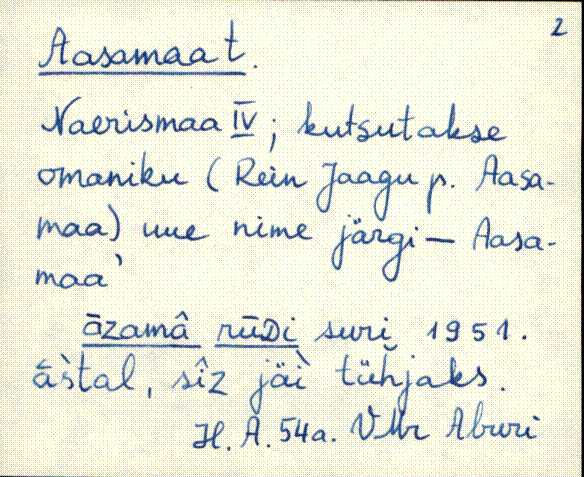 2
Aasamaa t.
Naerismaa IV; kutsutakse
omaniku (Rein Jaagu p. Aasa-
maa) uue nime järgi – Aasa-
maa'
āzamâ rūDi suri 1951.
āstal, sîz jäì tühjaks.
H. A. 54a. VMr Aburi